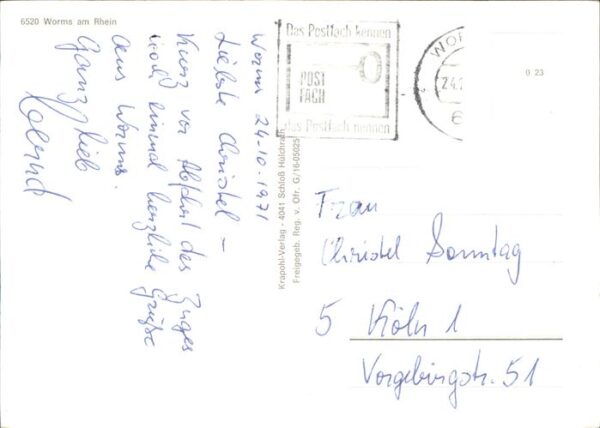 6520 Worms am Rhein
Worms 24-10.1971
Liebste Christel –
Kurz vor Abfahrt des Zuges
noch einmal herzliche Grüße
aus Worms.
Ganz lieb
Das Postfach kennen
POST
FACH
das Postfach nennen
WOR
24.
6
0.23
Krapohl-Verlag - 4041 Schloß Hülchrath
Freigegeb. Reg. v. Ofr. G/16-05025
Frau
Christel Sonntag
5 Köln 1
Vorgebirgstr. 51